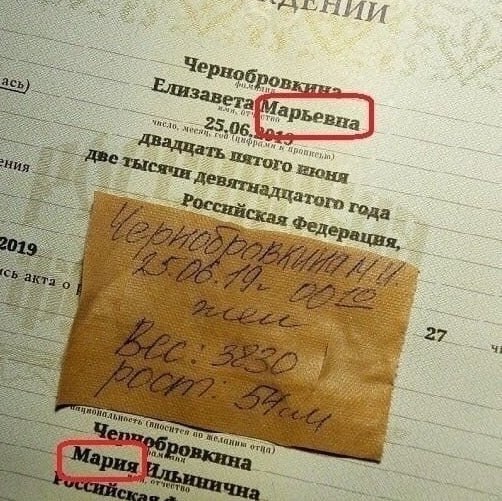 ЖДЕНИИ
Чернобровкина
фамилия
ась)
Елизавета Марьевна
имя, отчество
25.06.2019
число, месяц, год (цифрами и прописью)
двадцать пятого июня
две тысячи девятнадцатого года
ения
Российская Федерация,
2019
сь акта о
27
Чернобровкина М.И.
25.06.19г 00 10
жен
Вес: 3830
рост: 54см
национальность (вносится по желанию отца)
Чернобровкина
фамилия
Мария Ильинична
имя, отчество
Российская Фед